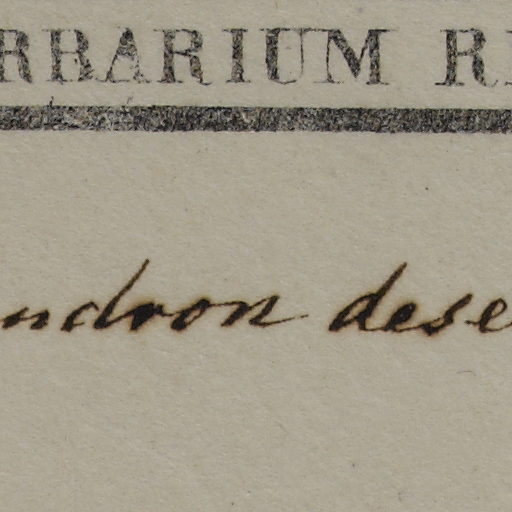 RBARIUM R
ndron dese